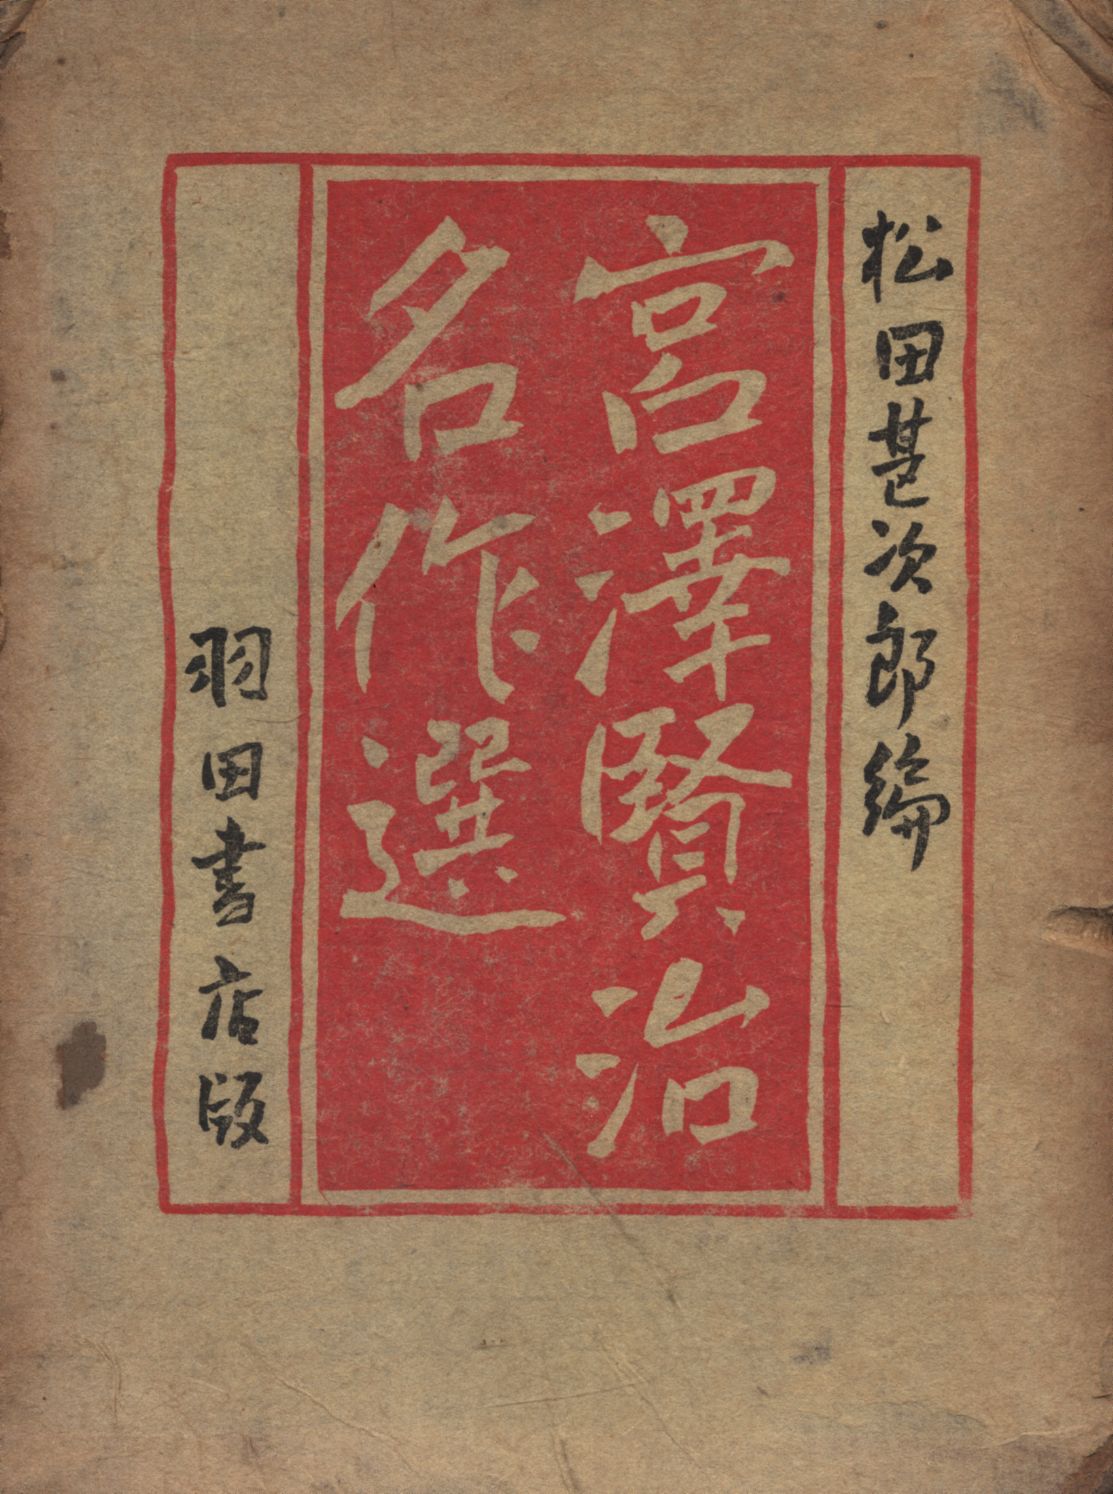 松田甚次郎編
宮澤賢治
名作選
羽田書店版